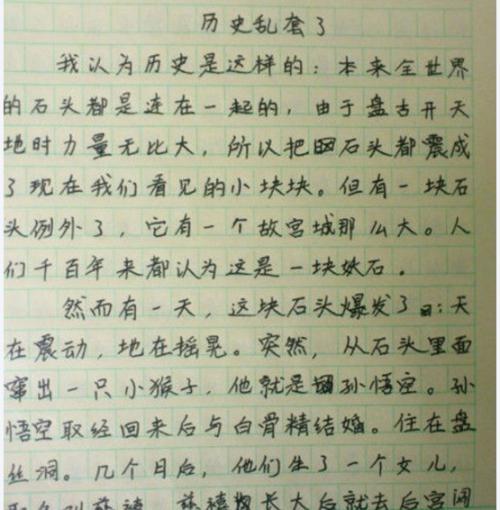 历史乱套了
我认为历史是这样的：本来全世界
的石头都是连在一起的，由于盘古开天
地时力量无比大，所以把石头都震成
了现在我们看见的小块块。但有一块石
头例外了，它有一个故宫城那么大。人
们千百年来都认为这是一块妖石。
然而有一天，这块石头爆发了：天
在震动，地在摇晃。突然，从石头里面
窜出一只小猴子，他就是孙悟空。孙
悟空取经回来后与白骨精结婚。住在盘
丝洞。几个月后，他们生了一个女儿，
慈禧长大后就去后宫